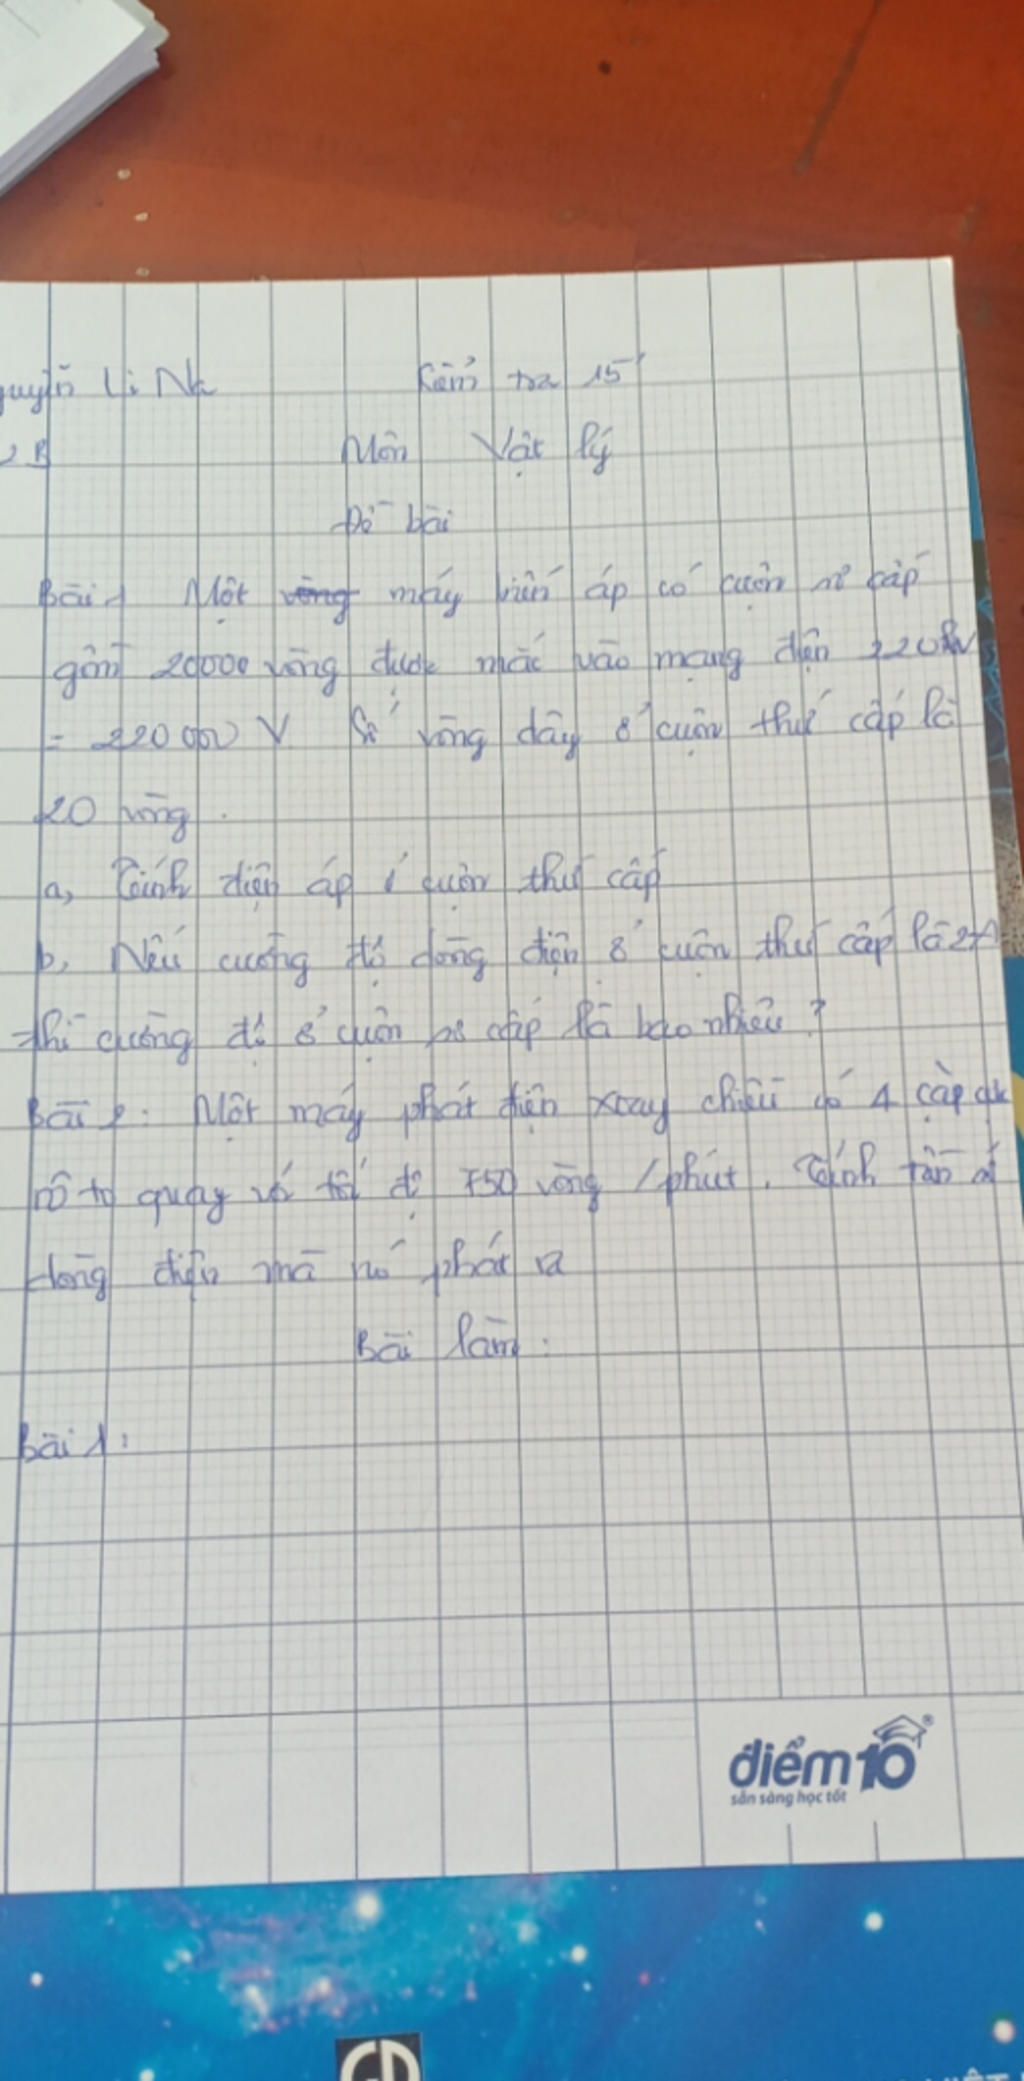 guyễn Li Na Kiểm tra 15'
2B Môn Vật lý
Đề bài
Bài 1 Một vòng máy biến áp có cuộn sơ cấp
gồm 20000 vòng được mắc vào mạng điện 220kV
= 220000 V Số vòng dây ở cuộn thứ cấp là
20 vòng.
a, Tính điện áp ở cuộn thứ cấp
b, Nếu cường độ dòng điện ở cuộn thứ cấp là 2A
thì cường độ ở cuộn sơ cấp là bao nhiêu?
Bài 2: Một máy phát điện xoay chiều có 4 cặp cực
rô to quay với tốc độ 750 vòng / phút. Tính tần số
dòng điện mà nó phát ra
Bài làm:
Bài 1:
điểm10®
sẵn sàng học tốt
GD